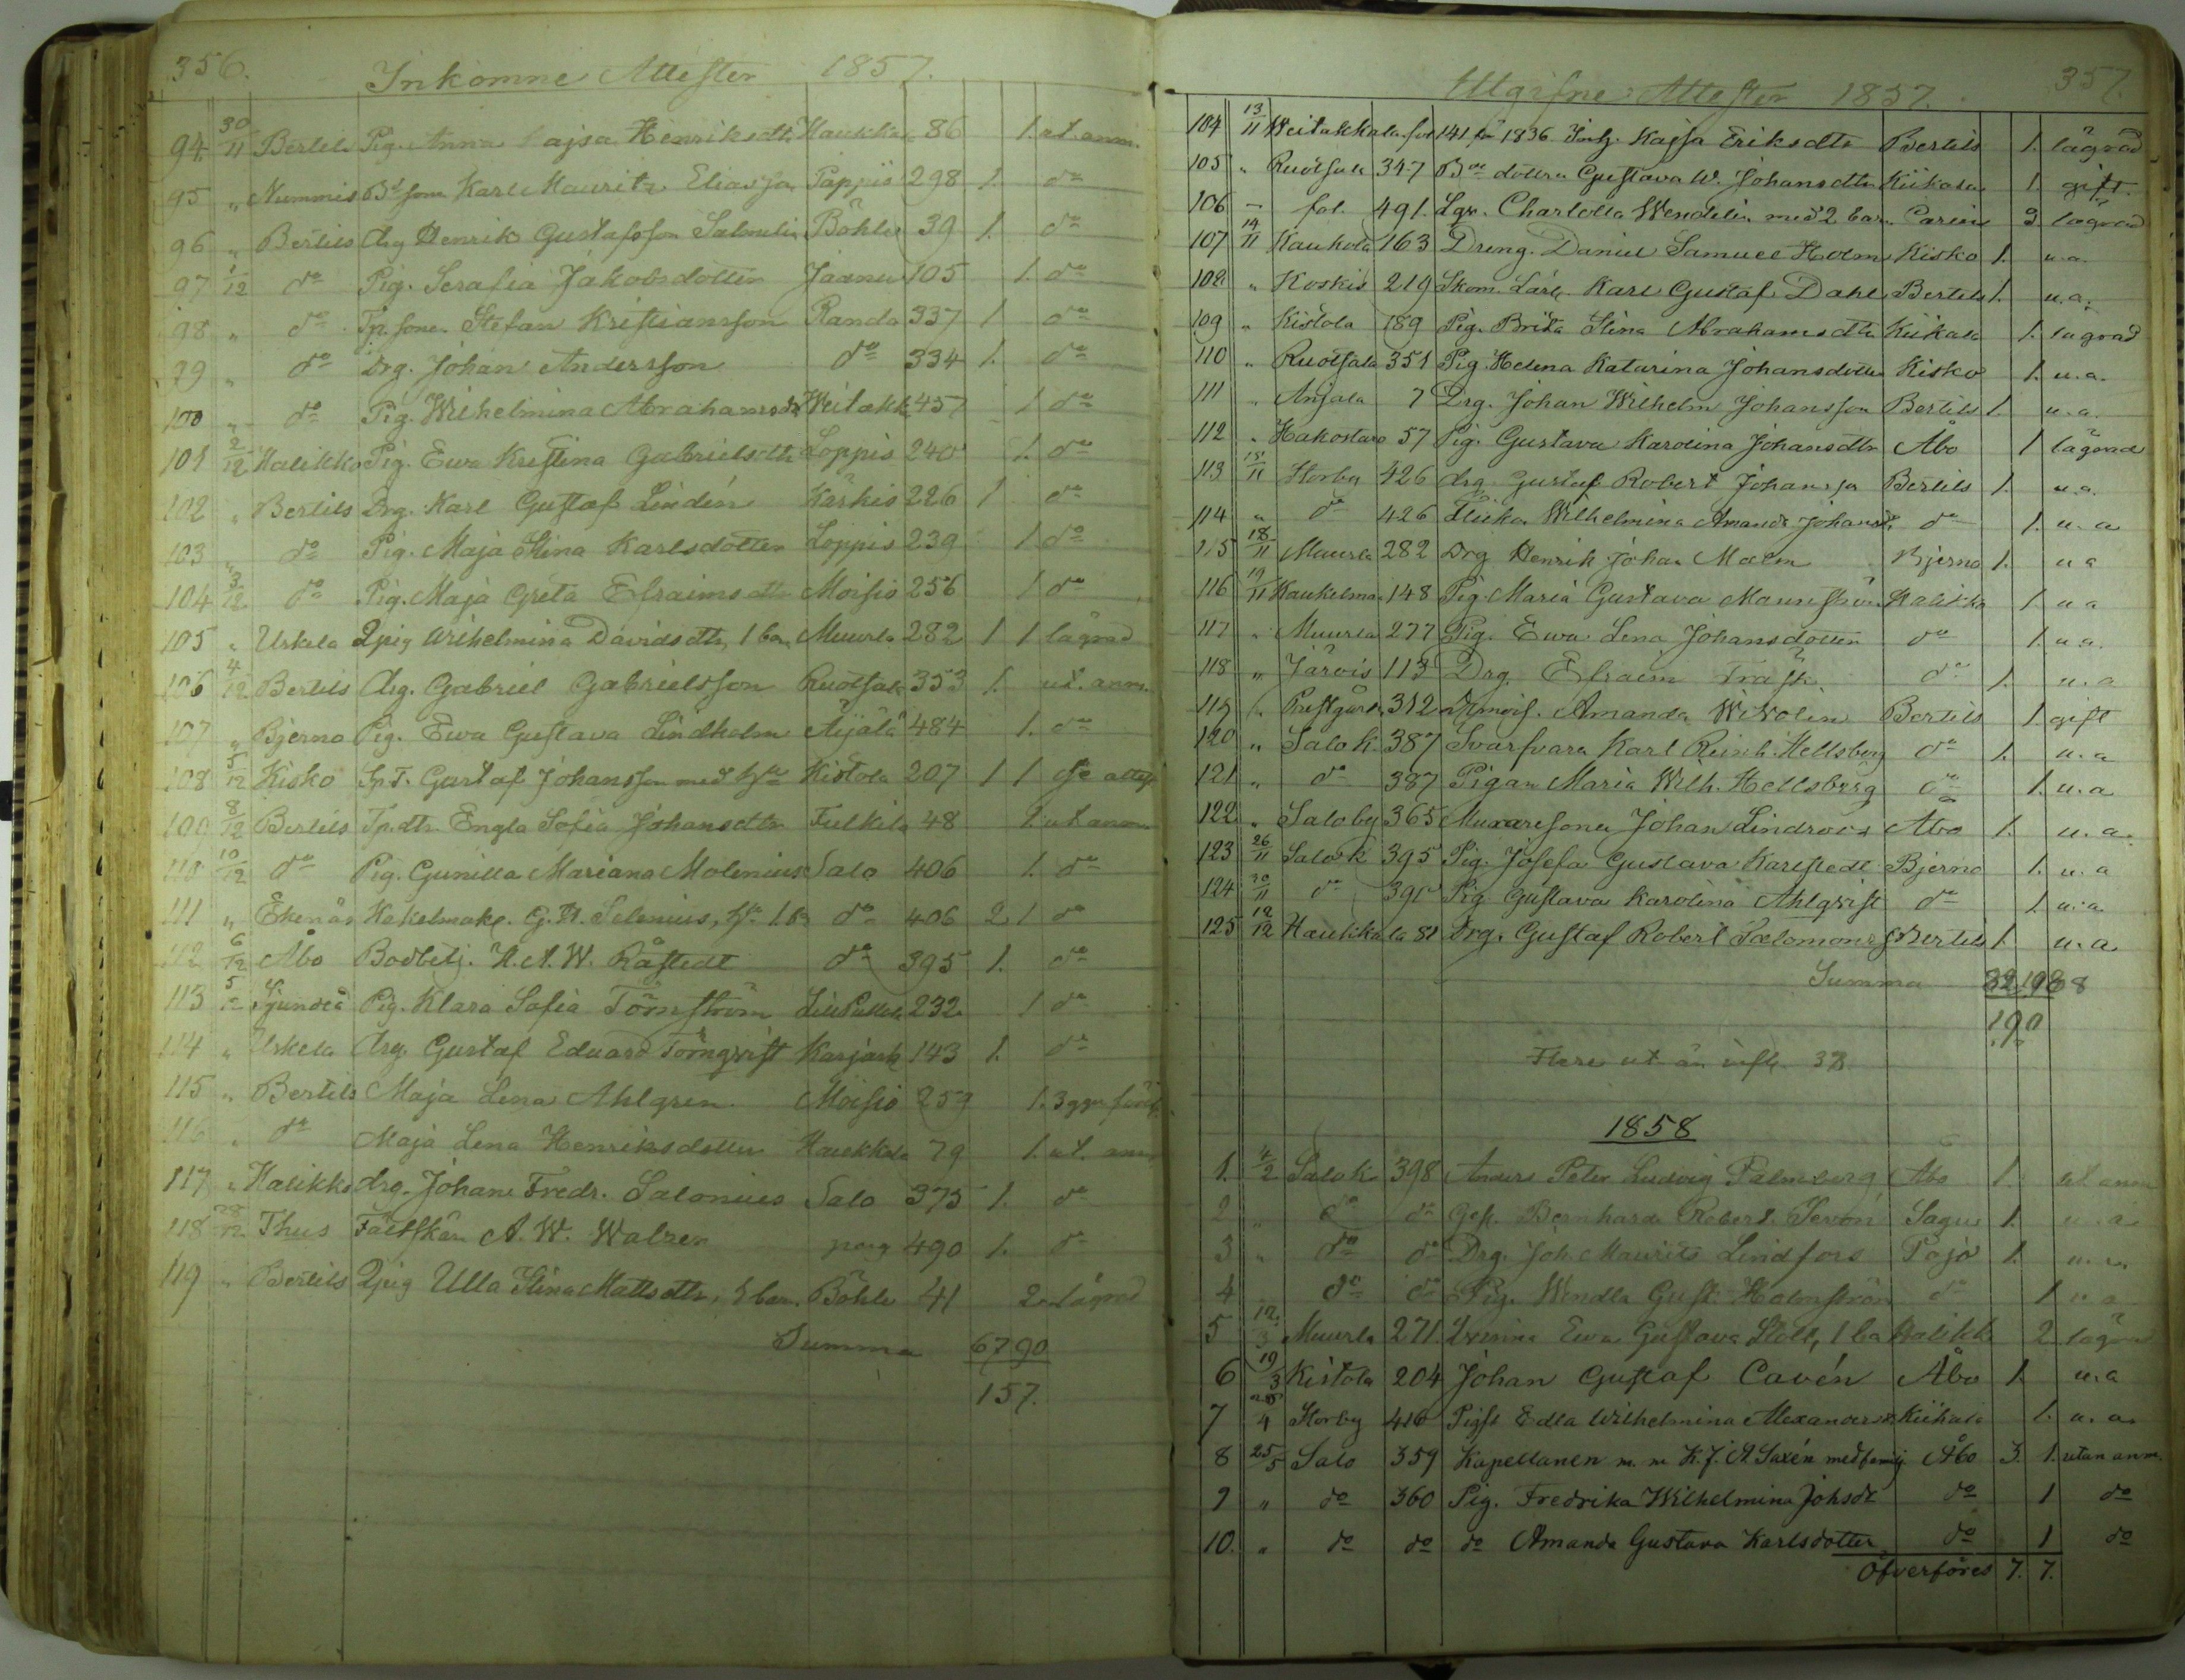 356. Inkomne Attester 1857.
94. 30/11 Bertils Pig. Anna Cajsa Henriksdtr Haukka 86 1. ut. anm.
95 " Nummis Bd. son Karl Mauritz Eliasson Pappis 298 1. do
96 " Bertils drg Henrik Gustafsson Salmelin Böhle 39 1. do
97 1/12 do Pig. Serafia Jakobsdotter Jaanu 105 1. do
98 " do Tp. sone. Stefan Kristiansson Randa 337 1 do
99 " do Drg. Johan Andersson do 334 1. do
100 " do Pig. Wilhelmina Abrahamsdr Weitakk 457 1 do
101 2/12 Halikko Pig. Ewa Kristina Gabrielsdtr Loppis 240 1. do
102 " Bertils Drg. Karl Gustaf Lindén Kärkis 226 1 do
103 " do Pig. Maja Stina Karlsdotter Loppis 239 1 do
104 3/12 do Pig. Maja Greta Efraimsdtr Moisio 256 1 do
105 " Uskela Qpig Wilhelmina Davidsdtr, 1 bar. Muurla 282 1 1 lägrad
106 4/12 Bertils Drg. Gabriel Gabrielsson Ruotsala 353 1. ut. anm.
107 " Bjerno Pig. Ewa Gustava Lindholm Äijälä 484 1. do
108 5/12 Kisko Sp. T. Gustaf Johansson med hu Kistola 207 1 1 se attest
109 8/12 Bertils Tp. dtr. Engla Sofia Johansdtr Fulkila 48 1. ut anm
110 10/12 do Pig. Gunilla Mariana Molenius Salo 406 1. do
111 " Ekenäs Kakelmak. G. A. Selenius, hu 1 b. do 406 2 1 do
112 6/12 Åbo Bodbetj. K. A. W. Råstedt do 395 1. do
113 5/12 Sjundeå Pig. Klara Sofia Törnström Lill Pullola 232 1 do
114 " Uskela drg. Gustaf Eduard Törnqvist Karjask 143 1. do
115 " Bertils Maja Lena Ahlgren Moisio 259 1. 3 ggr
116 " do Maja Lena Henriksdotter Haukkala 79 1. ut. anm
117 " Halikko drg. Johan Fredr. Salonius Salo 375 1. do
118 28/12 Thus Fältskär A. W. Walzer pag 490 1. do
119 " Bertils Qpig Ulla Stina Mattsdtr, 1 bar. Böhle 41 2. lägrad
Summa 67 90
157.
Utgifne Attester 1857. 357.
104 13/11 Weitakkala fol 141 fr 1836 Inh. Kajsa Eriksdtr Bertils 1. lägrad
105 " Ruotsala 347 Bde dottra Gustava W. Johansdtr Kiikala 1 gift.
106 – fol. 491. Lgr. Charlotta Wendelin med 2 bar. Pariin 3 lägrad
107 14/11 Kaukola 163 Dreng. Daniel Samuel Holm Kisko 1. u. a.
108 " Koskis 219 Skom. Lärl. Karl Gustaf Dahl Bertils 1. u. a.
109 " Kistola 189 Pig. Brita Stina Abrahamsdtr Kiikala 1. lägrad
110 " Ruotsala 351 Pig. Helena Katarina Johansdotter Kisko 1. u. a.
111 " Anjala 7 Drg. Johan Wilhelm Johansson Bertils 1. u. a.
112 " Hakostaro 57 Pig. Gustava Karolina Johansdtr Åbo 1 lägrad
113 15/11 Storby 426 drg. Gustaf Robert Johansson Bertils 1. u. a.
114 " do 426 Flicka Wilhelmina Amanda Johansdr do 1. u. a
115 18/11 Muurla 282 Drg Henrik Johan Malm Bjerno 1. u a
116 19/11 Kaukelma 148 Pig. Maria Gustava Mannström Halikko 1 u a
117 " Muurla 277 Pig. Ewa Lena Johansdotter do 1. u a.
118 " Järvis 113 Drg. Efraim Träsk do 1. u. a
119 " Prestgård. 312 Amanda Wikolin Bertils 1. gift
120 " Salo k. 387 Svarfvaren Karl Reinh. Hellsberg do 1. u. a
121 " do 387 Pigan Maria Wilh. Hellsberg do 1. u. a
122 " Salo by 365 Muraresonen Johan Lindroos Åbo 1. u. a.
123 26/11 Salo k 395 Pig. Josefa Gustava Karlstedt Bjerno 1. u. a
124 30/11 do 390 Pig Gustava Karolina Ahlqvist do 1. u. a.
125 12/12 Haukkala 81 Drg. Gustaf Robert Salomonss Bertils 1. u. a.
Summa
190
Flere ut än infl. 33
1858
1. 4/2 Salo k 398 Anders Peter Ludvig Palmberg Åbo 1. ut anm
2 " do do Ges. Bernhard Robert Sevón Sagu 1. u. a
3 " do do Drg. Joh. Maurits Lindfors Pojo 1. u. a.
4 " do do Pig. Wendla Gust. Holmström do 1 u a
5 12/3 Muurla 271. Ewa Gustava Stoll, 1 ba Halikk 2 lägrad
6 19/3 Kistola 204 Johan Gustaf Cavén Åbo 1. u. a
7 28/4 Storby 416 Pigst Edla Wilhelmina Alexandersd Kiikala 1. u. a.
8 25/5 Salo 359 Kapellanen m. m K. J. A. Saxén med familj Åbo 3. 1. utan anm.
9 " do 360 Pig. Fredrika Wilhelmina Johsdr do 1 do
10. " do do do Amanda Gustava Karlsdotter do 1 do
Öfverföres 7. 7.